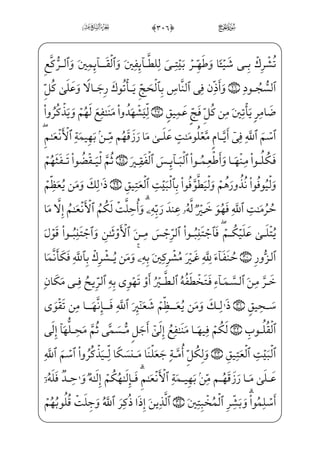 سورة الحج ﴿٣٠٦﴾ الجزء السابع عشر
تُشْرِكْ بِى شَيْـًٔا وَطَهِّرْ بَيْتِىَ لِلطَّآئِفِينَ وَٱلْقَآئِمِينَ وَٱلرُّكَّعِ
ٱلسُّجُودِ ﴿٢٦﴾ وَأَذِّن فِى ٱلنَّاسِ بِٱلْحَجِّ يَأْتُوكَ رِجَالًا وَعَلَىٰ كُلِّ
ضَامِرٍ يَأْتِينَ مِن كُلِّ فَجٍّ عَمِيقٍ ﴿٢٧﴾ لِّيَشْهَدُوا۟ مَنَـٰفِعَ لَهُمْ وَيَذْكُرُوا۟
ٱسْمَ ٱللَّهِ فِىٓ أَيَّامٍ مَّعْلُومَـٰتٍ عَلَىٰ مَا رَزَقَهُم مِّنۢ بَهِيمَةِ ٱلْأَنْعَـٰمِ ۖ
فَكُلُوا۟ مِنْهَا وَأَطْعِمُوا۟ ٱلْبَآئِسَ ٱلْفَقِيرَ ﴿٢٨﴾ ثُمَّ لْيَقْضُوا۟ تَفَثَهُمْ
وَلْيُوفُوا۟ نُذُورَهُمْ وَلْيَطَّوَّفُوا۟ بِٱلْبَيْتِ ٱلْعَتِيقِ ﴿٢٩﴾ ذَٰلِكَ وَمَن يُعَظِّمْ
حُرُمَـٰتِ ٱللَّهِ فَهُوَ خَيْرٌ لَّهُۥ عِندَ رَبِّهِۦ ۗ وَأُحِلَّتْ لَكُمُ ٱلْأَنْعَـٰمُ إِلَّا مَا
يُتْلَىٰ عَلَيْكُمْ ۖ فَٱجْتَنِبُوا۟ ٱلرِّجْسَ مِنَ ٱلْأَوْثَـٰنِ وَٱجْتَنِبُوا۟ قَوْلَ
ٱلزُّورِ ﴿٣٠﴾ حُنَفَآءَ لِلَّهِ غَيْرَ مُشْرِكِينَ بِهِۦ ۚ وَمَن يُشْرِكْ بِٱللَّهِ فَكَأَنَّمَا
خَرَّ مِنَ ٱلسَّمَآءِ فَتَخْطَفُهُ ٱلطَّيْرُ أَوْ تَهْوِى بِهِ ٱلرِّيحُ فِى مَكَانٍ
سَحِيقٍ ﴿٣١﴾ ذَٰلِكَ وَمَن يُعَظِّمْ شَعَـٰٓئِرَ ٱللَّهِ فَإِنَّهَا مِن تَقْوَى
ٱلْقُلُوبِ ﴿٣٢﴾ لَكُمْ فِيهَا مَنَـٰفِعُ إِلَىٰٓ أَجَلٍ مُّسَمًّى ثُمَّ مَحِلُّهَآ إِلَى
ٱلْبَيْتِ ٱلْعَتِيقِ ﴿٣٣﴾ وَلِكُلِّ أُمَّةٍ جَعَلْنَا مَنسَكًا لِّيَذْكُرُوا۟ ٱسْمَ ٱللَّهِ
عَلَىٰ مَا رَزَقَهُم مِّنۢ بَهِيمَةِ ٱلْأَنْعَـٰمِ ۗ فَإِلَـٰهُكُمْ إِلَـٰهٌ وَٰحِدٌ فَلَهُۥٓ
أَسْلِمُوا۟ ۗ وَبَشِّرِ ٱلْمُخْبِتِينَ ﴿٣٤﴾ ٱلَّذِينَ إِذَا ذُكِرَ ٱللَّهُ وَجِلَتْ قُلُوبُهُمْ